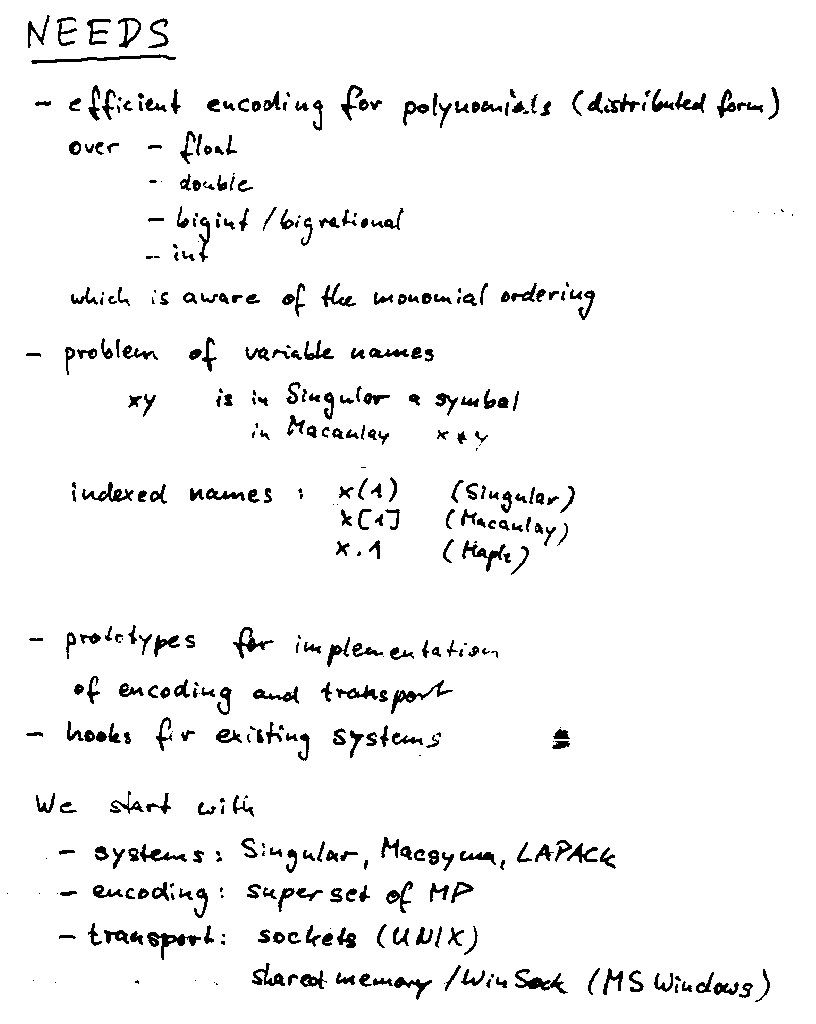 NEEDS
- efficient encoding for polynomials (distributed form)
over - float
- double
- bigint / bigrational
- int
which is aware of the monomial ordering
- problem of variable names
xy is in Singular a symbol
in Macaulay x * y
indexed names : x(1) (Singular)
x[1] (Macaulay)
x.1 (Maple)
- prototypes for implementation
of encoding and transport
- hooks for existing systems
We start with
- systems: Singular, Macsyma, LAPACK
- encoding: superset of MP
- transport: sockets (UNIX)
shared memory / WinSock (MS Windows)